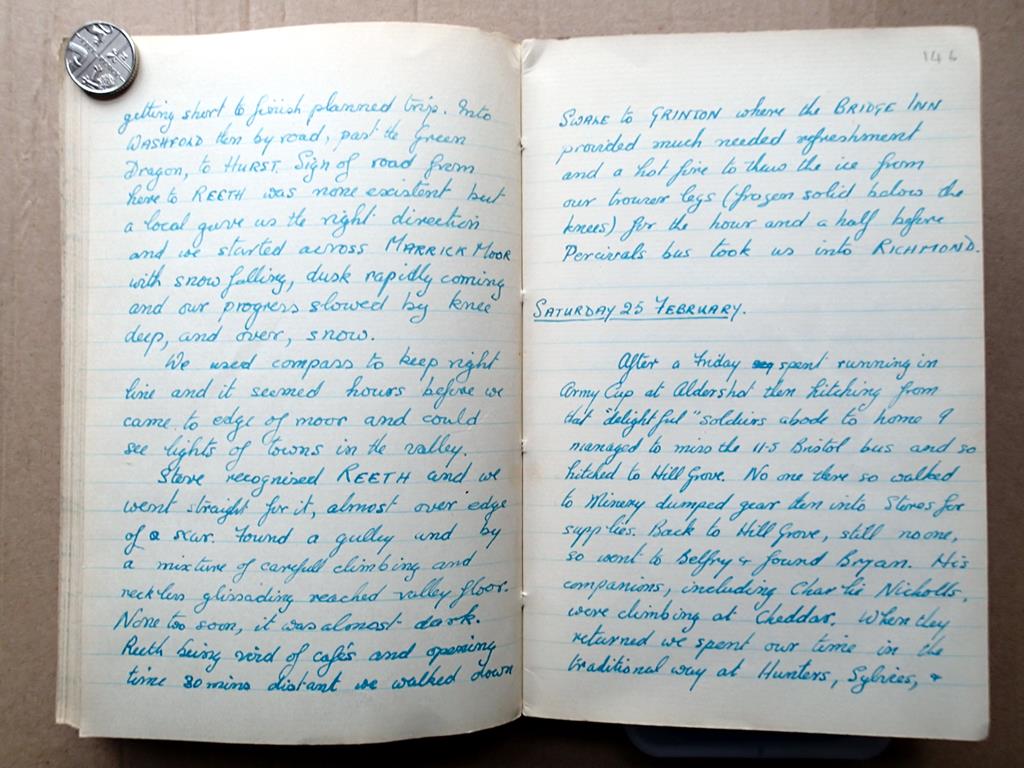 getting short to finish planned trip. Into
WASHFOLD then by road, past the Green
Dragon, to HURST. Sign of road from
here to REETH was none existent but
a local gave us the right direction
and we started across MARRICK MOOR
with snow falling, dusk rapidly coming
and our progress slowed by knee
deep, and over, snow.
We used compass to keep right
line and it seemed hours before we
came to edge of moor and could
see lights of towns in the valley.
Steve recognised REETH and we
went straight for it, almost over edge
of a scar. Found a gulley and by
a mixture of carefull climbing and
reckless glissading reached valley floor.
None too soon, it was almost dark.
Reeth being void of cafés and opening
time 30 mins distant we walked down
146
SWALE to GRINTON where the BRIDGE INN
provided much needed refreshment
and a hot fire to thaw the ice from
our trouser legs (frozen solid below the
knees) for the hour and a half before
Percivals bus took us into RICHMOND.
SATURDAY 25 FEBRUARY.
After a Friday spent running in
Army Cup at Aldershot then hitching from
that "delightful" soldiers abode to home I
managed to miss the 11-5 Bristol bus and so
hitched to Hill Grove. No one there so walked
to Minery dumped gear then into Stores for
supplies. Back to Hill Grove, still no one,
so went to Belfry & found Bryan. His
companions, including Charlie Nicholls,
were climbing at Cheddar. When they
returned we spent our time in the
traditional way at Hunters, Sybices, &